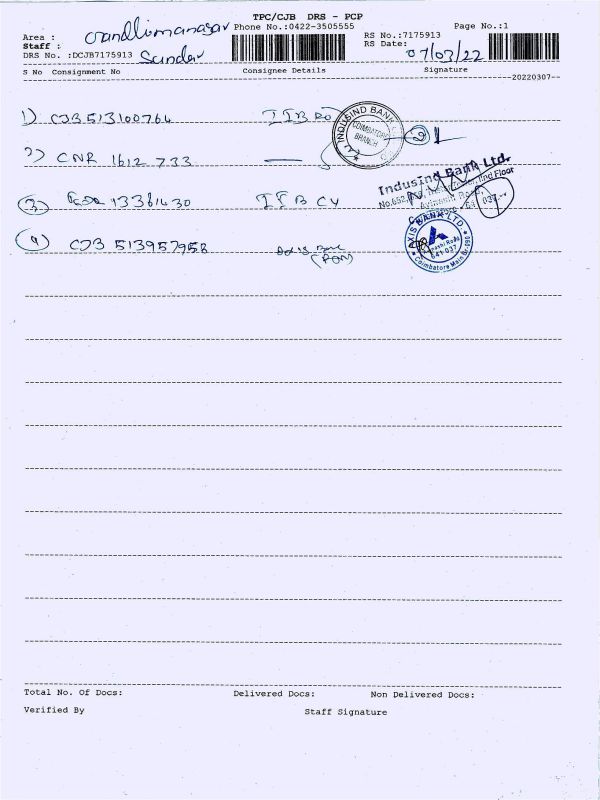 TPC/CJB DRS - PCP
Area : Gandhimanagar Phone No.:0422-3505555 Page No.:1
Staff : Sundar RS No.:7175913
DRS No. :DCJB7175913 RS Date: 07/03/22
S No Consignment No Consignee Details Signature
20220307
1) CJB513100764 IIB RO
2) CNR 1612 733
3) 13361430 IIB CY
4) CJB 513957958 Axis Bank
INDUSIND BANK
COIMBATORE
BRANCH
IndusInd Bank Ltd.
Floor
AXIS BANK LTD
641 037
Coimbatore Main Br.
Total No. Of Docs: Delivered Docs: Non Delivered Docs:
Verified By Staff Signature